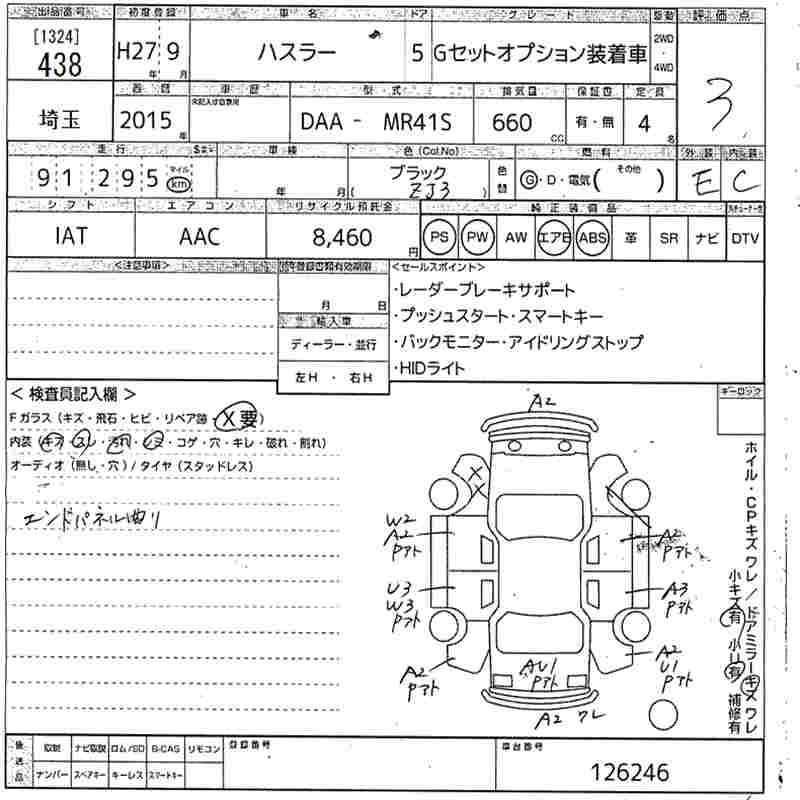 出品番号 初度登録 車名 ドア グレード 駆動 評価点
[1324]
438 H27年 9月 ハスラー 5 Gセットオプション装着車 2WD・4WD 3
車歴 型式 排気量 保証書 定員
埼玉 2015年 DAA - MR41S 660cc 有・無 4名
走行 車検 色(Col.No) 燃料 外装 内装
91,295 マイル km 年 月 ブラック ZJ3 色替 G・D・電気( その他 ) E C
シフト エアコン リサイクル預託金 純正装備品
IAT AAC 8,460円 PS PW AW エアB ABS 革 SR ナビ DTV
<注意事項> 登録書類有効期限 <セールスポイント>
月 日
・レーダーブレーキサポート
輸入車
・プッシュスタート・スマートキー
ディーラー・並行
・バックモニター・アイドリングストップ
左H ・ 右H
・HIDライト
<検査員記入欄> キーロック
Fガラス(キズ・飛石・ヒビ・リペア歯・X要)
内装(キズ・スレ・汚れ・シミ・コゲ・穴・キレ・破れ・割れ)
オーディオ(無し・穴)/タイヤ(スタッドレス)
エンドパネル曲り
A2
X
X
W2
A2
Pアト
A2
Pアト
U3
W3
Pアト
A3
Pアト
A2
Pアト
AU1
Pアト
A2
U1
Pアト
A2 ワレ
ホイル・CPキズ ワレ / ドアミラーキズ ワレ
小キズ有 小U有 補修有
後送品 取説 ナビ取説 ロム/SD B-CAS リモコン 登録番号 車台番号
ナンバー スペアキー キーレス スマートキー 126246